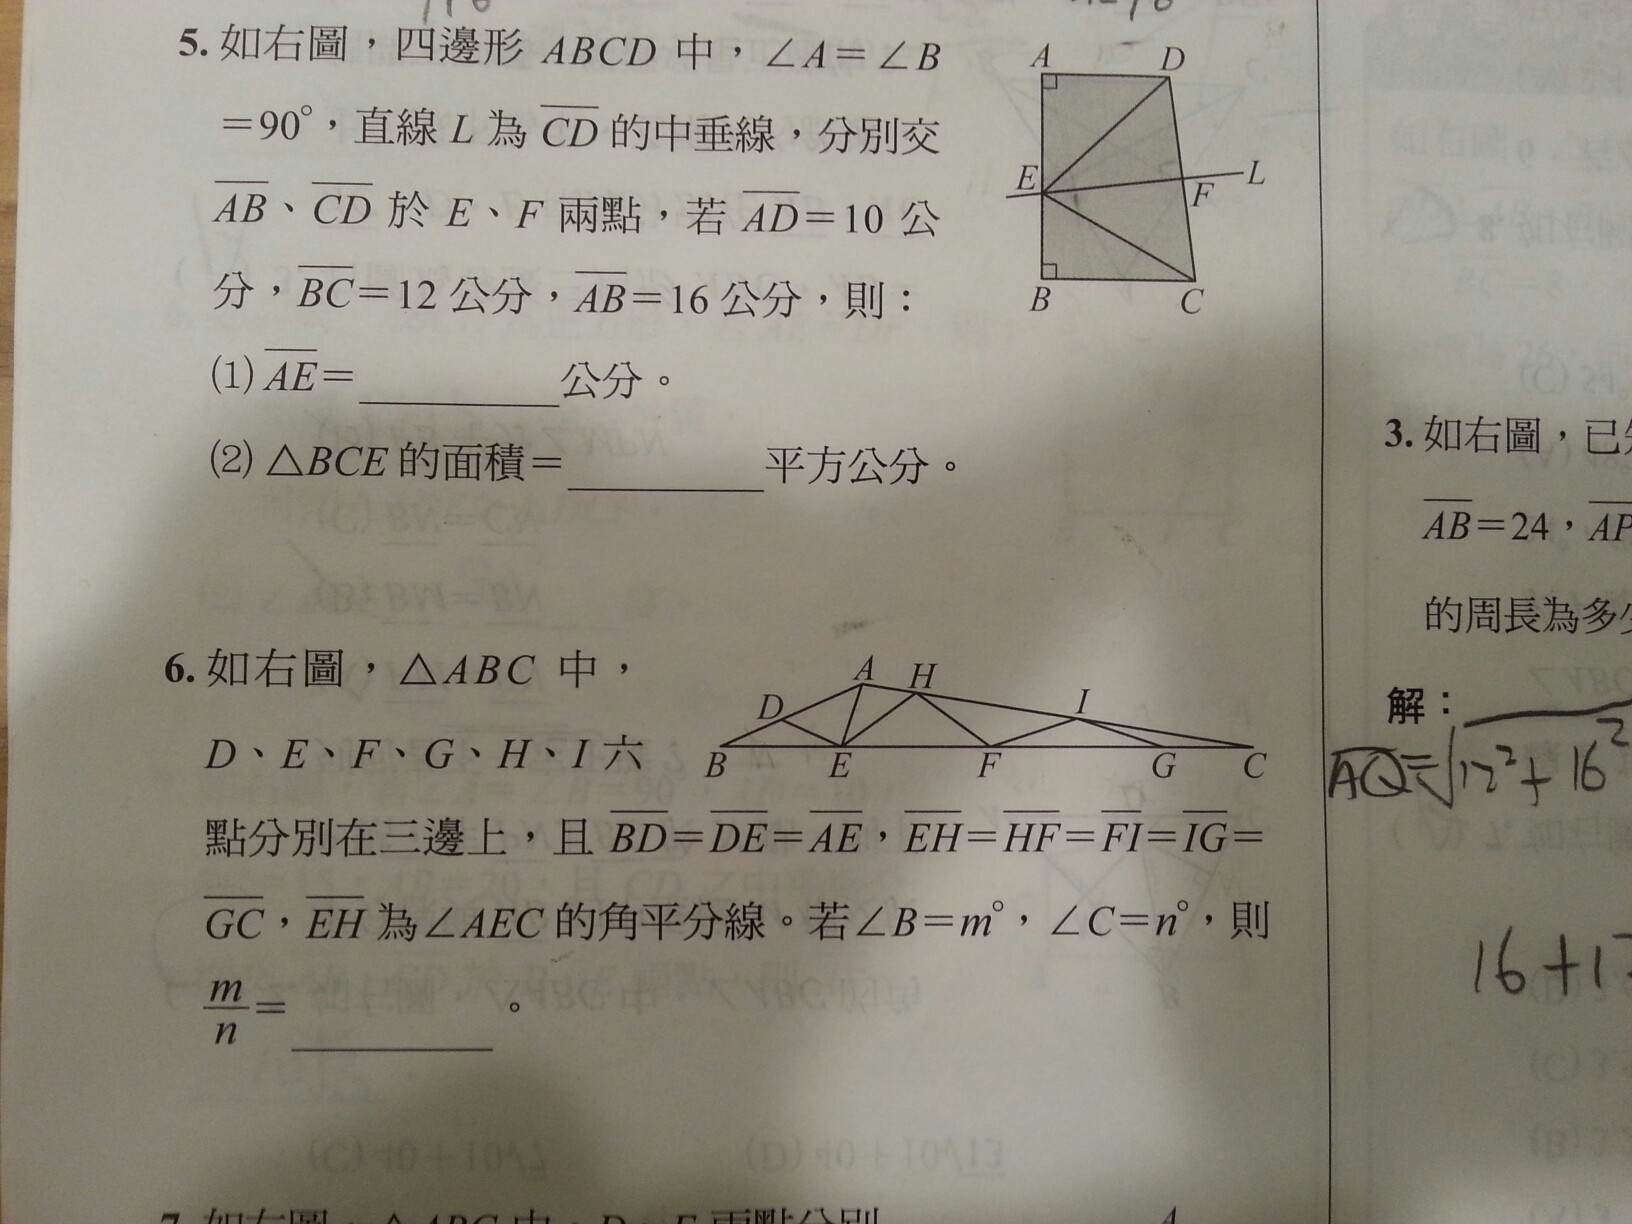 5. 如右圖，四邊形 ABCD 中，∠A＝∠B
＝90°，直線 L 為 \overline{CD} 的中垂線，分別交
\overline{AB}、\overline{CD} 於 E、F 兩點，若 \overline{AD}＝10 公
分，\overline{BC}＝12 公分，\overline{AB}＝16 公分，則：
(1) \overline{AE}＝________公分。
(2) △BCE 的面積＝________平方公分。
A
D
E
F
L
B
C
6. 如右圖，△ABC 中，
D、E、F、G、H、I 六
點分別在三邊上，且 \overline{BD}＝\overline{DE}＝\overline{AE}，\overline{EH}＝\overline{HF}＝\overline{FI}＝\overline{IG}＝
\overline{GC}，\overline{EH} 為∠AEC 的角平分線。若∠B＝m°，∠C＝n°，則
\frac{m}{n}＝________。
A
H
D
I
B
E
F
G
C
3. 如右圖，已
\overline{AB}＝24，\overline{AP}
的周長為多
解：
\overline{AQ}=√12²+16²
16+1